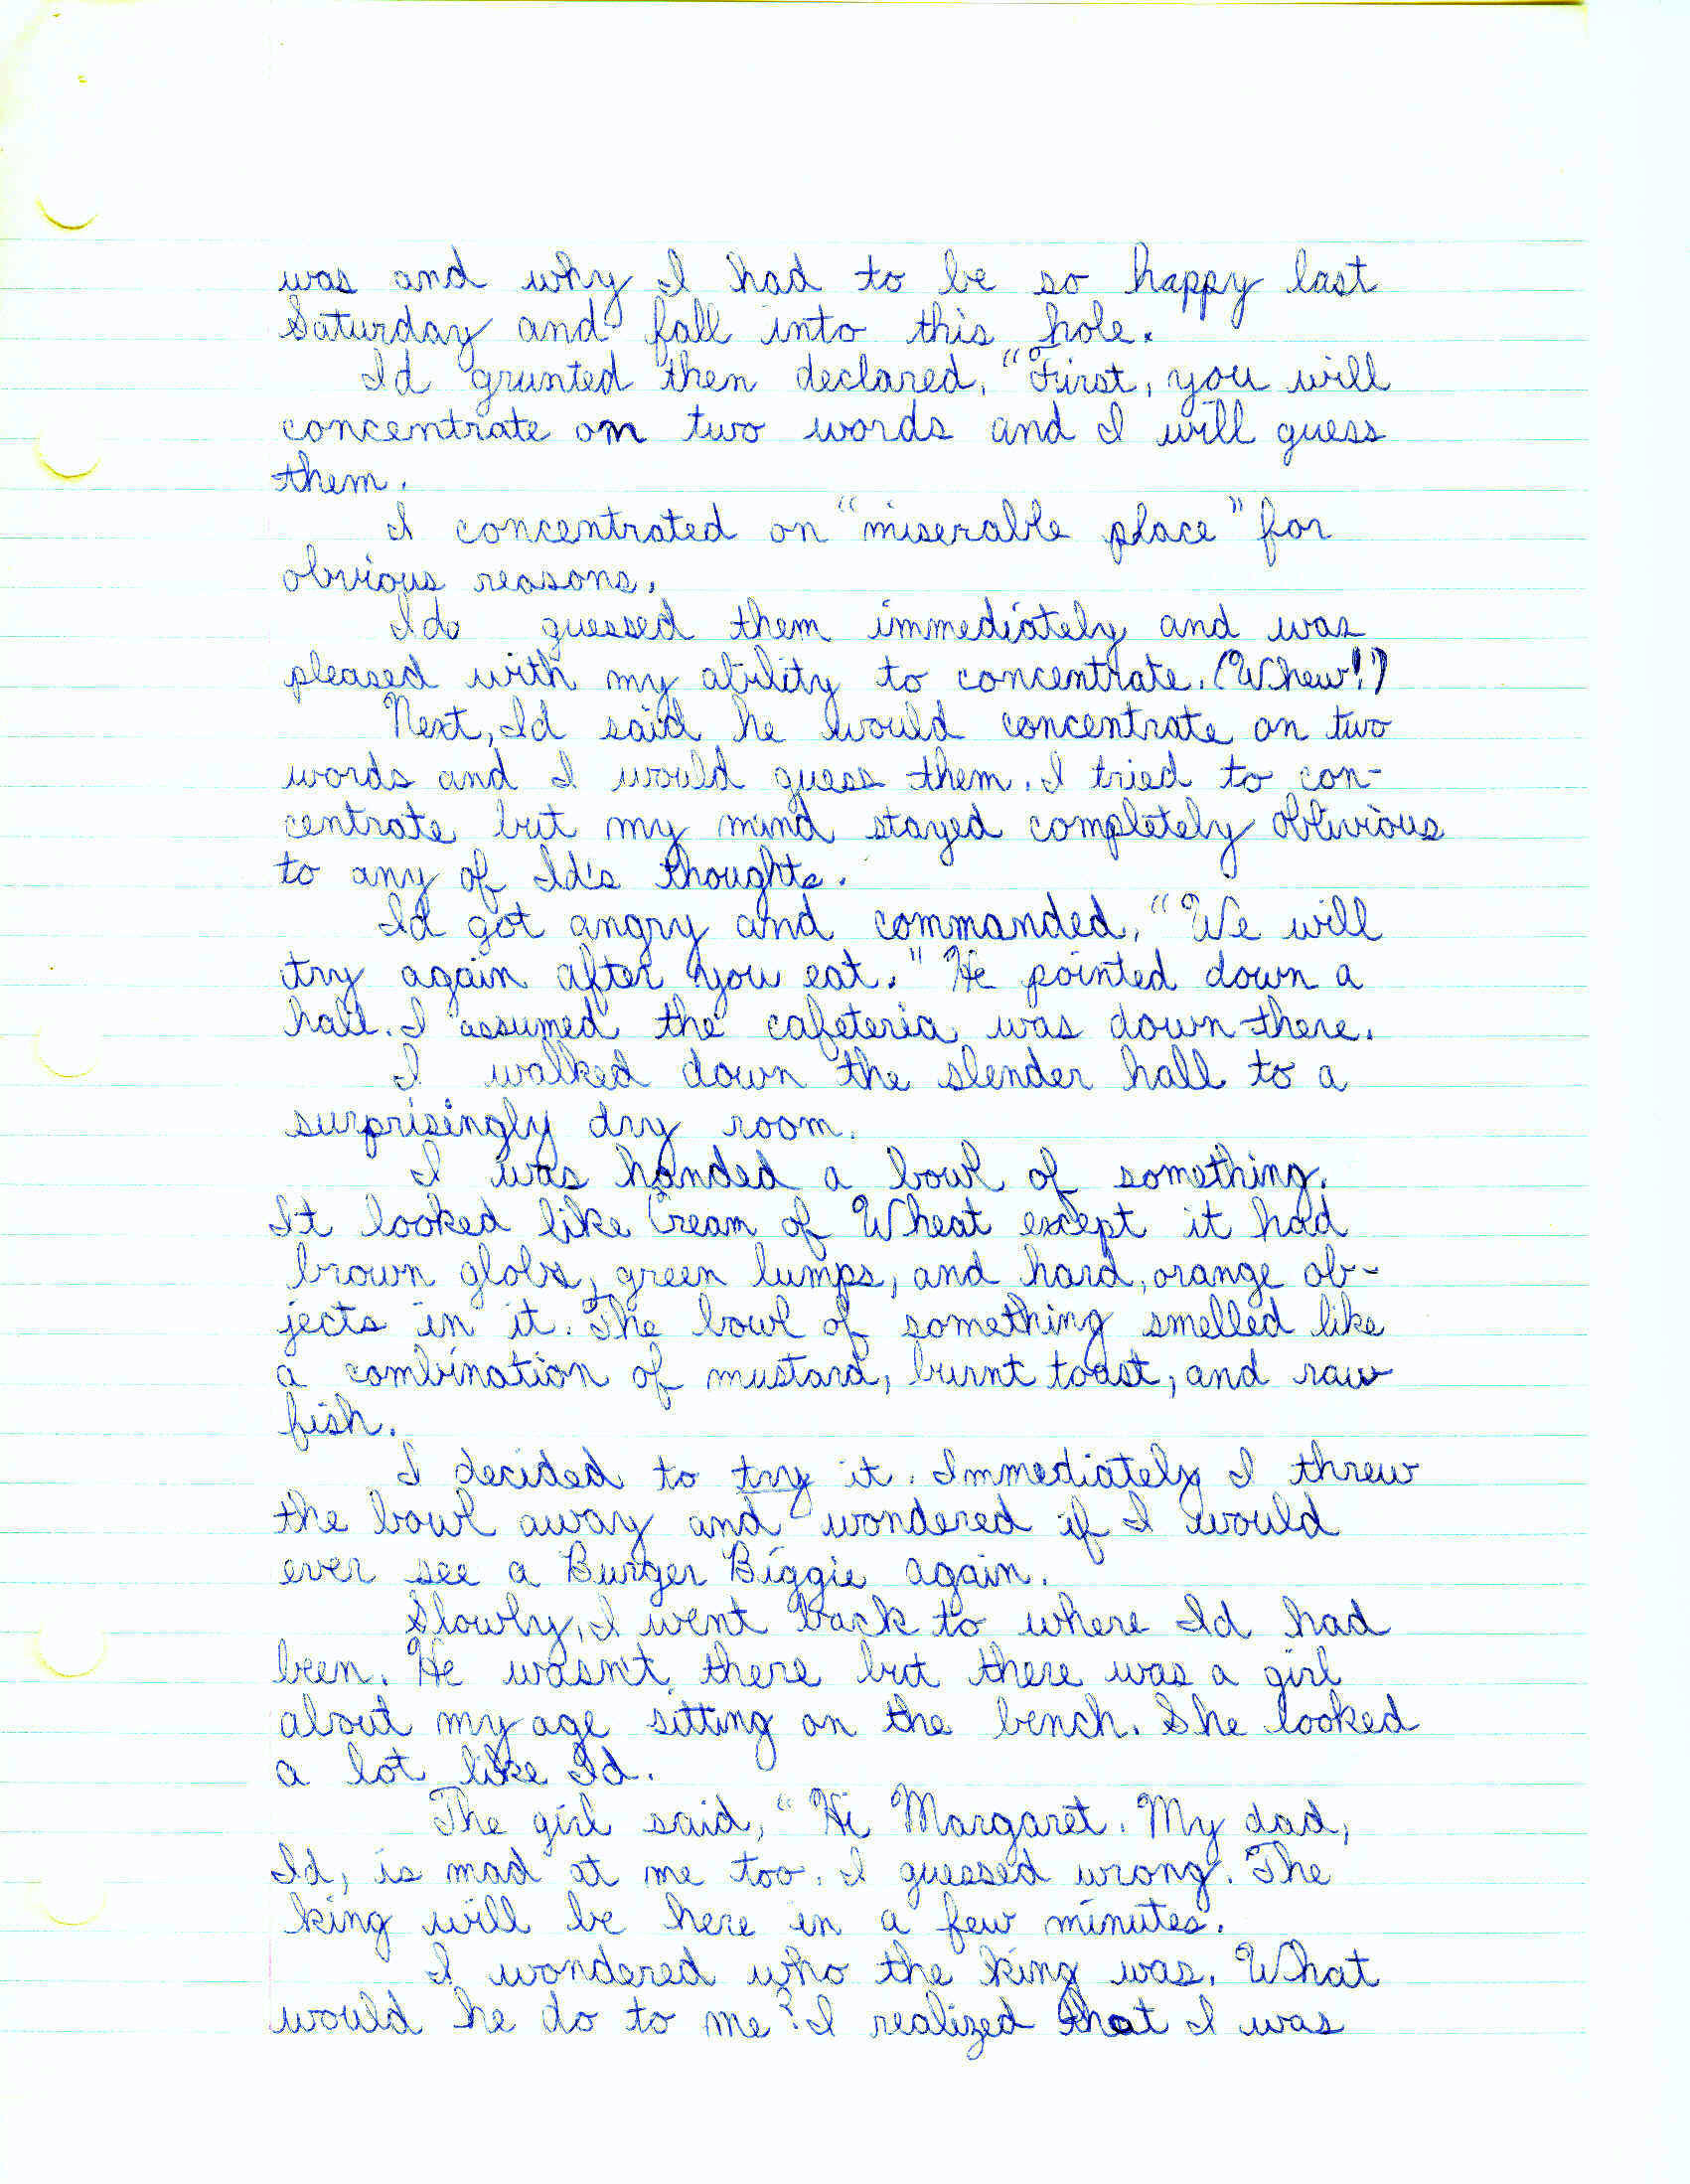 was and why I had to be so happy last
Saturday and fall into this hole.
Id grunted then declared, "First, you will
concentrate on two words and I will guess
them.
I concentrated on "miserable place" for
obvious reasons.
Ido guessed them immediately and was
pleased with my ability to concentrate. (Whew!)
Next, Id said he would concentrate on two
words and I would guess them. I tried to con-
centrate but my mind stayed completely oblivious
to any of Id's thoughts.
Id got angry and commanded, "We will
try again after you eat." He pointed down a
hall. I assumed the cafeteria was down there.
I walked down the slender hall to a
surprisingly dry room.
I was handed a bowl of something.
It looked like Cream of Wheat except it had
brown globs, green lumps, and hard, orange ob-
jects in it. The bowl of something smelled like
a combination of mustard, burnt toast, and raw
fish.
I decided to try it. Immediately I threw
the bowl away and wondered if I would
ever see a Burger Biggie again.
Slowly, I went back to where Id had
been. He wasn't there but there was a girl
about my age sitting on the bench. She looked
a lot like Id.
The girl said, "Hi Margaret. My dad,
Id, is mad at me too. I guessed wrong. The
king will be here in a few minutes.
I wondered who the king was. What
would he do to me? I realized that I was